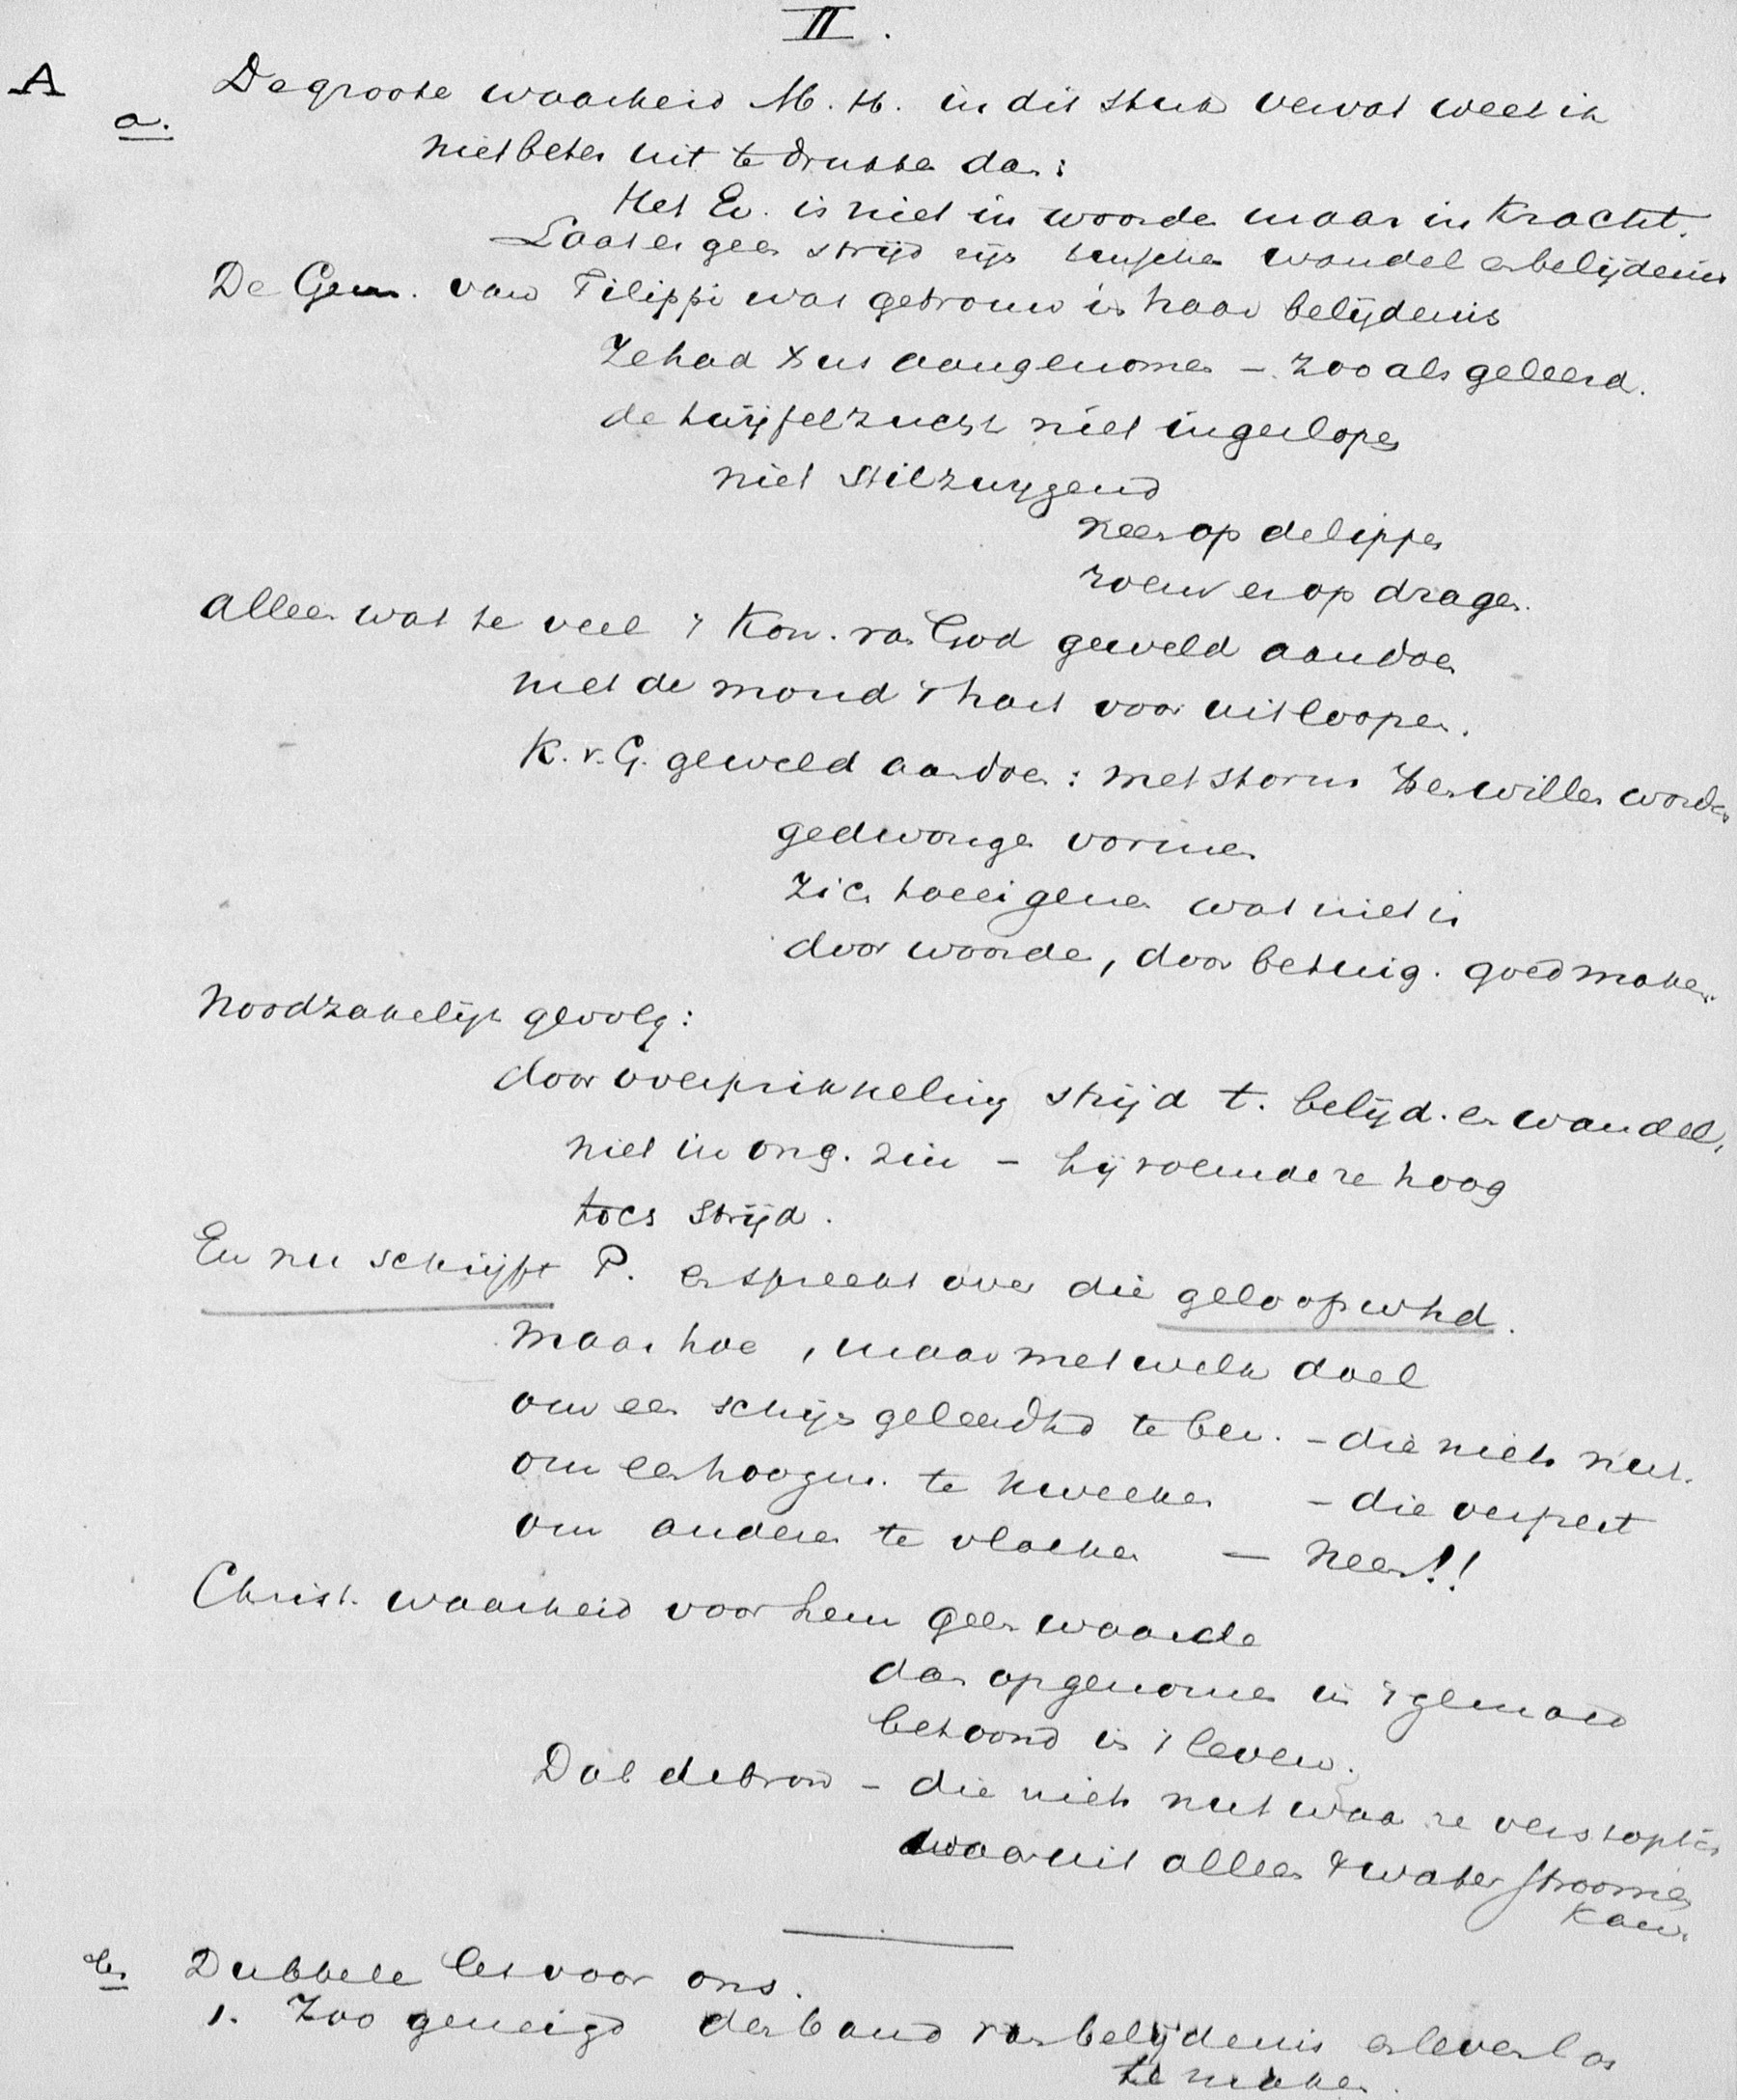 II.
A
a. De groote waarheid M. H. in dit stuk vervat weet ik
niet beter uit te drukke dan:
Het Ev. is niet in woorde maar in Kracht.
Laat er geen strijd zijn tusschen wandel en belijdenis
De Gem. van Filippi was getrouw in haar belijdenis
Ze had Xus aangenomen – zooals geleerd.
de twijfelzucht niet ingeslopen
niet stilzwijgend
neen op de lippen
roem er op dragen.
Alleen wat te veel 't Kon. van God geweld aandoen
met de mond 't hart vooruitloopen.
K. v. G. geweld aandoen: met storm Xen willen worden
gedwonge vormen
zich toeeigenen wat niet is
door woorde, door betuig. goedmaken.
Noodzakelijk gevolg:
door overprikkeling strijd t. belijd. en wandel,
niet in ong. zin – hij roemde ze hoog
toch strijd.
En nu schrijft P. en spreekt over die geloofswhd.
maar hoe, maar met welk doel
om een schijngeleerdhd te bev. – die niets nut.
om een hoogm. te kweeken – die verpest
om andere te vloeken – Neen!!
Christ. waarheid voor hem geen waarde
dan opgenomen in 't gemoed
betoond in 't leven.
Dat de bron – die niets nut waar ze verstopt is
waaruit alleen 't water stroomen
kan.
b. Dubbele les voor ons.
1. Zoo geneigd den band van belijdenis en leven los
te maken.